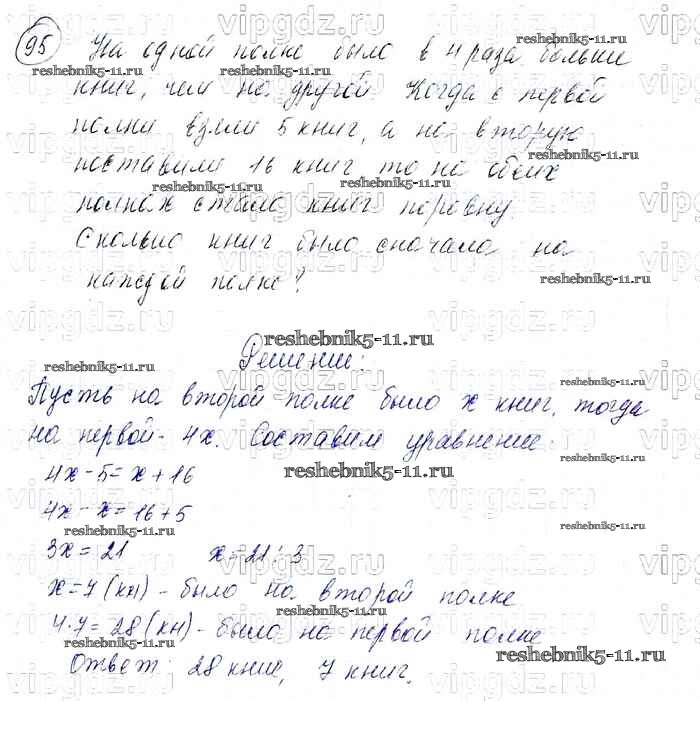 95 На одной полке было в 4 раза больше
книг, чем на другой Когда с первой
полки взяли 5 книг, а на вторую
поставили 16 книг то на обеих
полках стало книг поровну
Сколько книг было сначала на
каждой полке?
Решение:
Пусть на второй полке было x книг, тогда
на первой - 4x. Составим уравнение.
4x - 5 = x + 16
4x - x = 16 + 5
3x = 21 x = 21 : 3
x = 7 (кн) - было на второй полке
4 · 7 = 28 (кн) - было на первой полке
Ответ: 28 книг, 7 книг.
reshebnik5-11.ru
vipgdz.ru